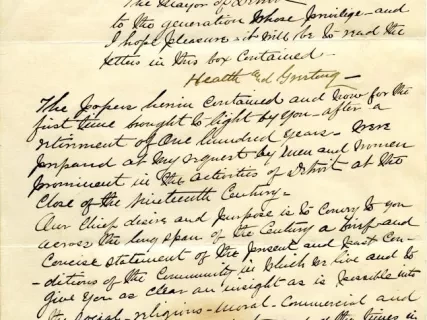 The Mayor of Detroit
to the generation whose privilege - and
I hope pleasure - it will be to read the
letters in this box contained -
Health and Greeting -
The papers herein contained and now for the
first time brought to light by you - after a
retirement of one hundred years - were
prepared at my request by men and women
prominent in the activities of Detroit at the
close of the Nineteenth Century -
Our chief desire and purpose is to convey to you
across the long span of the Century a brief and
concise statement of the present and past con-
-ditions of the Community in which we live and to
give you as clear an insight as is possible into
the social - religious - moral - Commercial and
of the times in